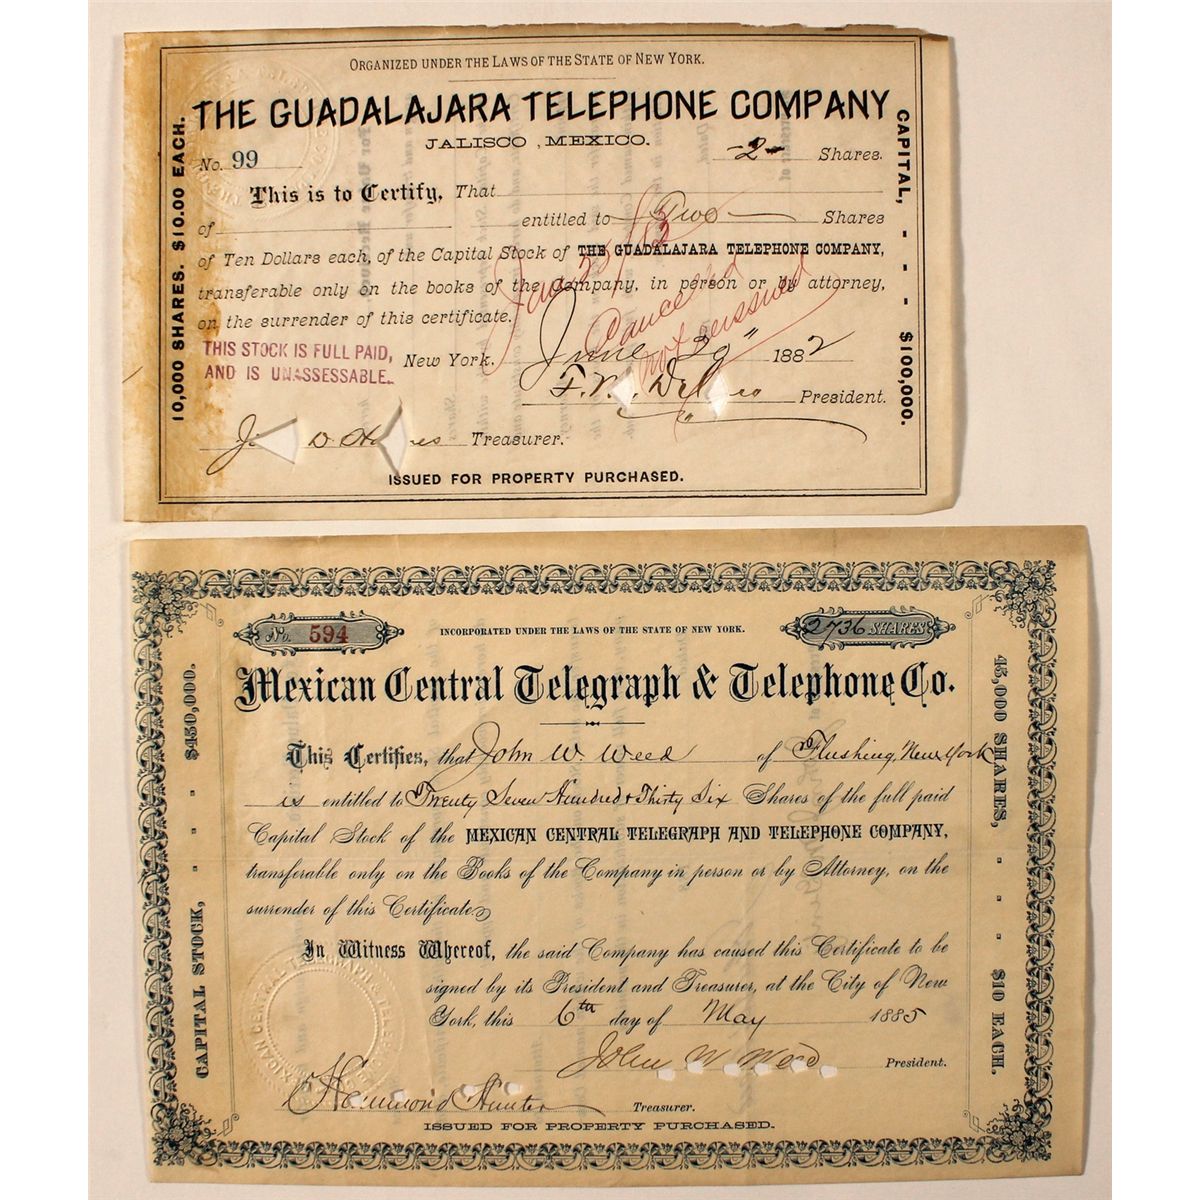 ORGANIZED UNDER THE LAWS OF THE STATE OF NEW YORK.
THE GUADALAJARA TELEPHONE COMPANY
JALISCO, MEXICO.
No. 99
-2- Shares.
This is to Certify, That
of entitled to Two Shares
of Ten Dollars each, of the Capital Stock of THE GUADALAJARA TELEPHONE COMPANY,
transferable only on the books of the Company, in person or by attorney,
on the surrender of this certificate.
Cancelled
not reissued
THIS STOCK IS FULL PAID,
AND IS UNASSESSABLE.
New York. June 29" 1882
President.
Treasurer.
ISSUED FOR PROPERTY PURCHASED.
10,000 SHARES. $10.00 EACH.
CAPITAL, - - - - $100,000.
No. 594
INCORPORATED UNDER THE LAWS OF THE STATE OF NEW YORK.
2736 SHARES
Mexican Central Telegraph & Telephone Co.
This Certifies, that John W. Weed of Flushing New York
is entitled to Twenty Seven Hundred & Thirty Six Shares of the full paid
Capital Stock of the MEXICAN CENTRAL TELEGRAPH AND TELEPHONE COMPANY,
transferable only on the Books of the Company in person or by Attorney, on the
surrender of this Certificate
In Witness Whereof, the said Company has caused this Certificate to be
signed by its President and Treasurer, at the City of New
York, this 6th day of May 1885
John W. Weed President.
Hammond Hunter Treasurer.
ISSUED FOR PROPERTY PURCHASED.
CAPITAL STOCK, - - - - $450,000.
45,000 SHARES, - - - - $10 EACH.